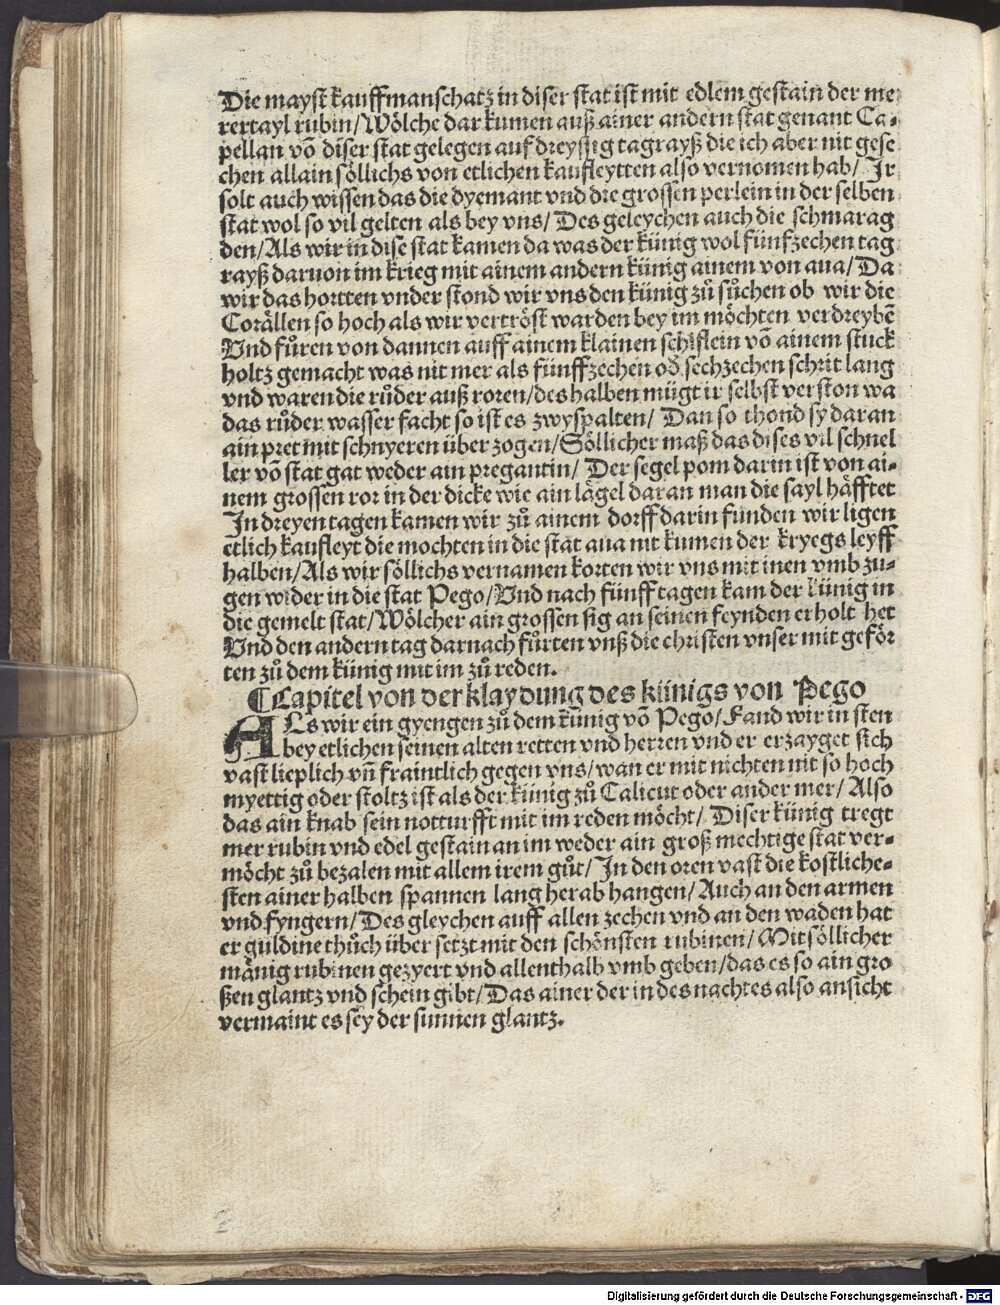 Die mayst kauffmanschatz in diser stat ist mit edlem gestain der me
rertayl rubin/Wölche dar kumen auß ainer andern stat genant Ca-
pellan vō diser stat gelegen auf dreyssig tagrayß die ich aber nit gese
chen allain söllichs von etlichen kaufleytten also vernomen hab/ Ir
solt auch wissen das die dyemant vnd die grossen perlein in der selben
stat wol so vil gelten als bey vns/ Des geleychen auch die schmarag
den/Als wir in dise stat kamen da was der künig wol fünfzechen tag
rayß daruon im krieg mit ainem andern künig ainem von aua/Da
wir das hortten vnder stond wir vns den künig zů sůchen ob wir die
Corällen so hoch als wir vertröst warden bey im möchten verdreybē
Vnd fůren von dannen auff ainem klainen schiflein vō ainem stuck
holtz gemacht was nit mer als fünffzechen oď sechzechen schrit lang
vnd waren die růder auß roren/des halben mügt ir selbst verston wa
das růder wasser facht so ist es zwyspalten/ Dan so thond sy daran
ain pret mit schnyeren über zogen/Söllicher maß das dises vil schnel
ler vō stat gat weder ain pregantin/ Der segel pom darin ist von ai-
nem grossen ror in der dicke wie ain lägel daran man die sayl häfftet
In dreyen tagen kamen wir zů ainem dorff darin funden wir ligen
etlich kaufleyt die mochten in die stat aua nit kumen der kryegs leyff
halben/Als wir söllichs vernamen korten wir vns mit inen vmb zu-
gen wider in die stat Pego/Vnd nach fünff tagen kam der künig in
die gemelt stat/Wölcher ain grossen sig an seinen feynden erholt het
Vnd den andern tag darnach fůrten vnß die christen vnser mit geför
ten zů dem künig mit im zů reden.
¶Capitel von der klaydung des künigs von Pego
ALs wir ein gyengen zů dem künig vō Pego/Fand wir in sten
bey etlichen seinen alten retten vnd herren vnd er erzayget sich
vast lieplich vñ fraintlich gegen vns/wan er mit nichten nit so hoch
myettig oder stoltz ist als der künig zů Calicut oder ander mer/ Also
das ain knab sein notturfft mit im reden möcht/ Diser künig tregt
mer rubin vnd edel gestain an im weder ain groß mechtige stat ver-
möcht zů bezalen mit allem irem gůt/ In den oren vast die kostliche-
sten ainer halben spannen lang herab hangen/ Auch an den armen
vnd fyngern/Des gleychen auff allen zechen vnd an den waden hat
er guldine thůch über setzt mit den schönsten rubinen/ Mit söllicher
mänig rubinen gezyert vnd allenthalb vmb geben/das es so ain gro
ßen glantz vnd schein gibt/Das ainer der in des nachtes also ansicht
vermaint es sey der sunnen glantz.
Digitalisierung gefördert durch die Deutsche Forschungsgemeinschaft - DFG